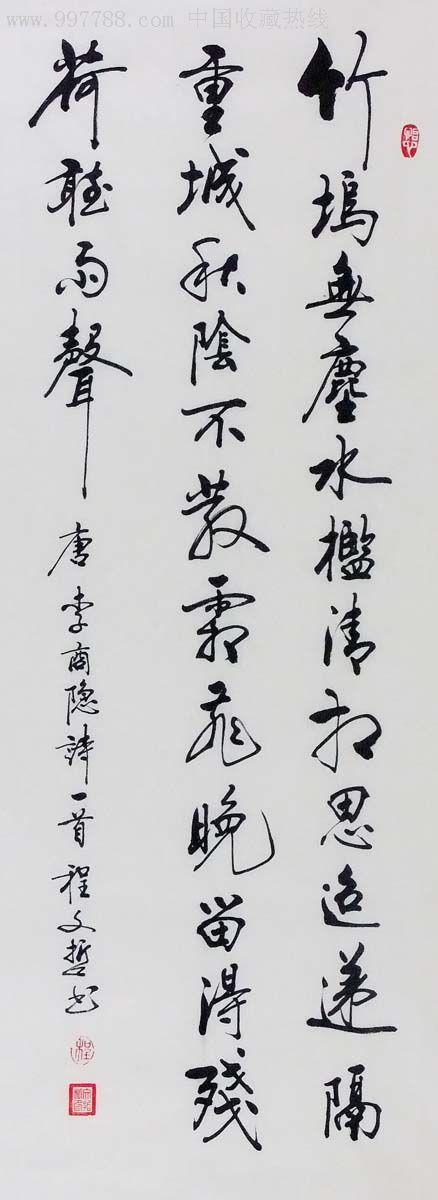 www.997788.com 中国收藏热线
竹塢無塵水檻清相思迢遞隔
重城秋陰不散霜飛晚留得殘
荷聽雨聲
唐李商隐詩一首程文哲书